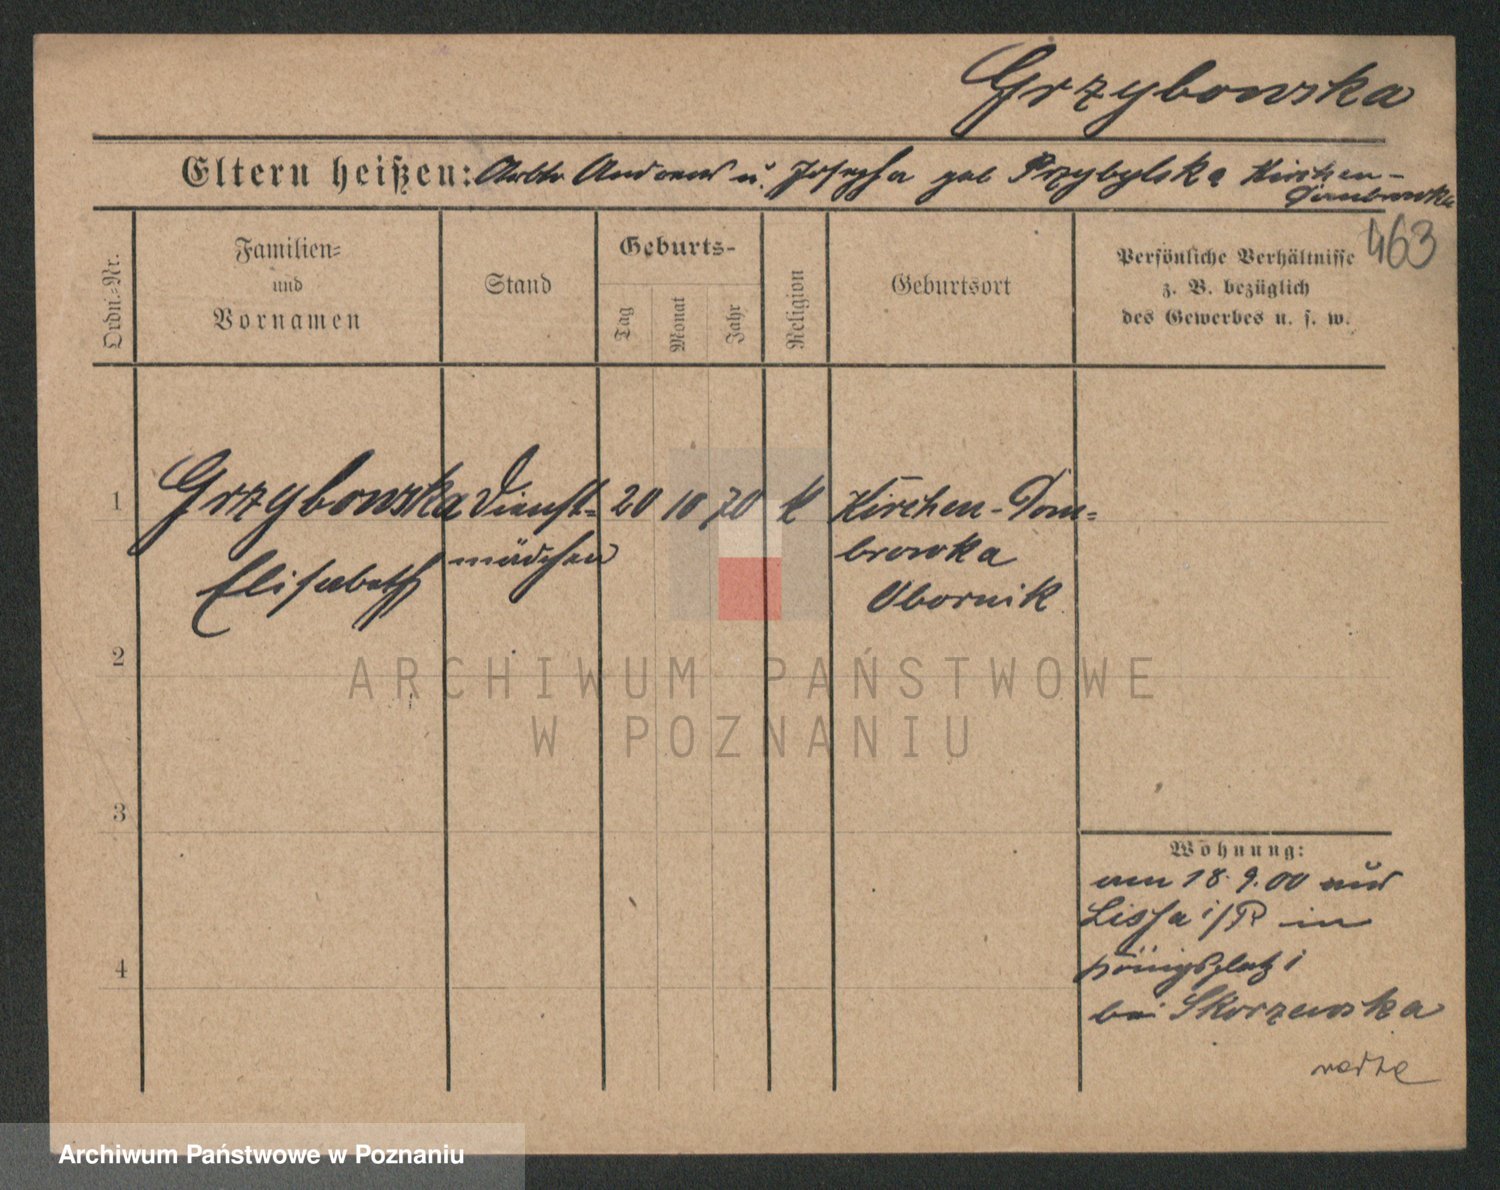 Grzybowska
Eltern heißen: Arbtr Andreas u. Josepha geb Przybylska Kirchen-
Dombrowka
463
Ordn.-Nr.
Familien-
und
Vornamen
Stand
Geburts-
Tag
Monat
Jahr
Religion
Geburtsort
Persönliche Verhältnisse
z. B. bezüglich
des Gewerbes u. s. w.
1 Grzybowska Dienst- 20 10 70 k Kirchen-Dom-
Elisabeth mädchen browka
Obornik
2
3
4
Wohnung:
am 18.9.00 aus
Lissa i/P in
Königsplatz 1
bei Skorzewska
ARCHIWUM PAŃSTWOWE
W POZNANIU
Archiwum Państwowe w Poznaniu